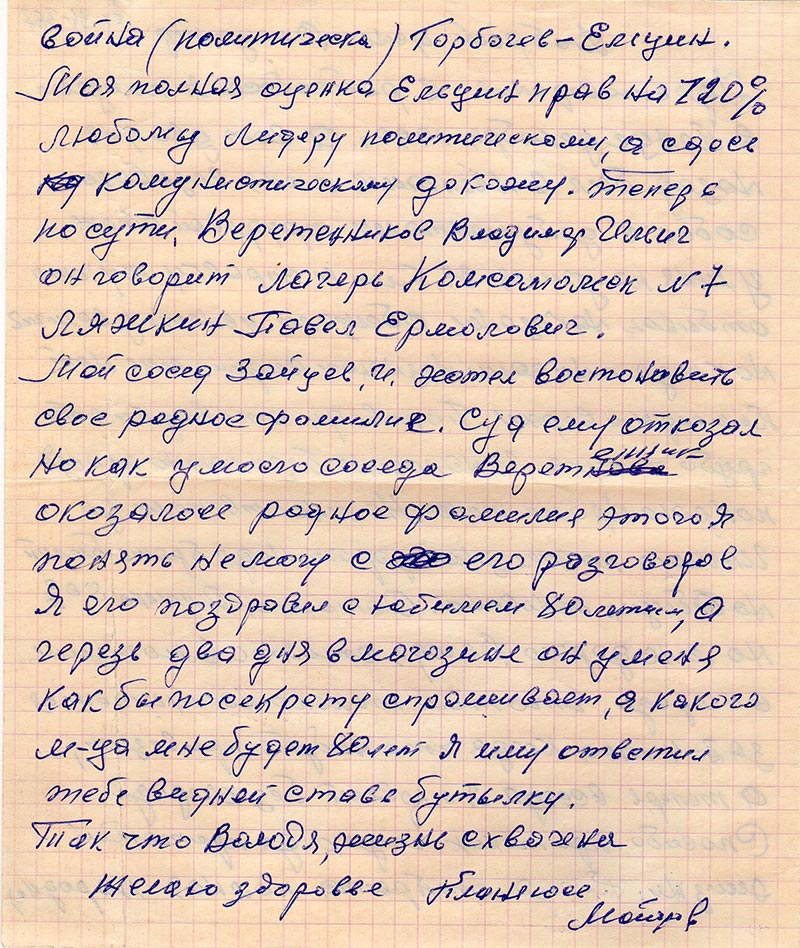 война (политическа) Горбочев-Елцин.
Моя полная оценка Ельцин прав на 120%
любому лидеру политическому, а сдесь
комунистическому докожу. теперь
по сути, Веретенников Владимир Ильич
он говорит лагерь Комсомолск N 7
Ляжкин Павел Ермолович.
Мой сосед Зайцев, И. хотел востоновить
свое родное фомилие. Суд ему откозал
Но как у моего соседа Веретенник
окозалосе родное фомилия этого я
понять не могу с его разговоров
Я его поздравил с юбилеем 80 летим, а
черезь два дня в могозине он у меня
как бы по секрету спрашивает, а какого
м-ца мне будет 80 лет Я ему ответил
тебе видней ставь бутылку.
Так что Володя, жизнь схвачена
Желаю здоровье